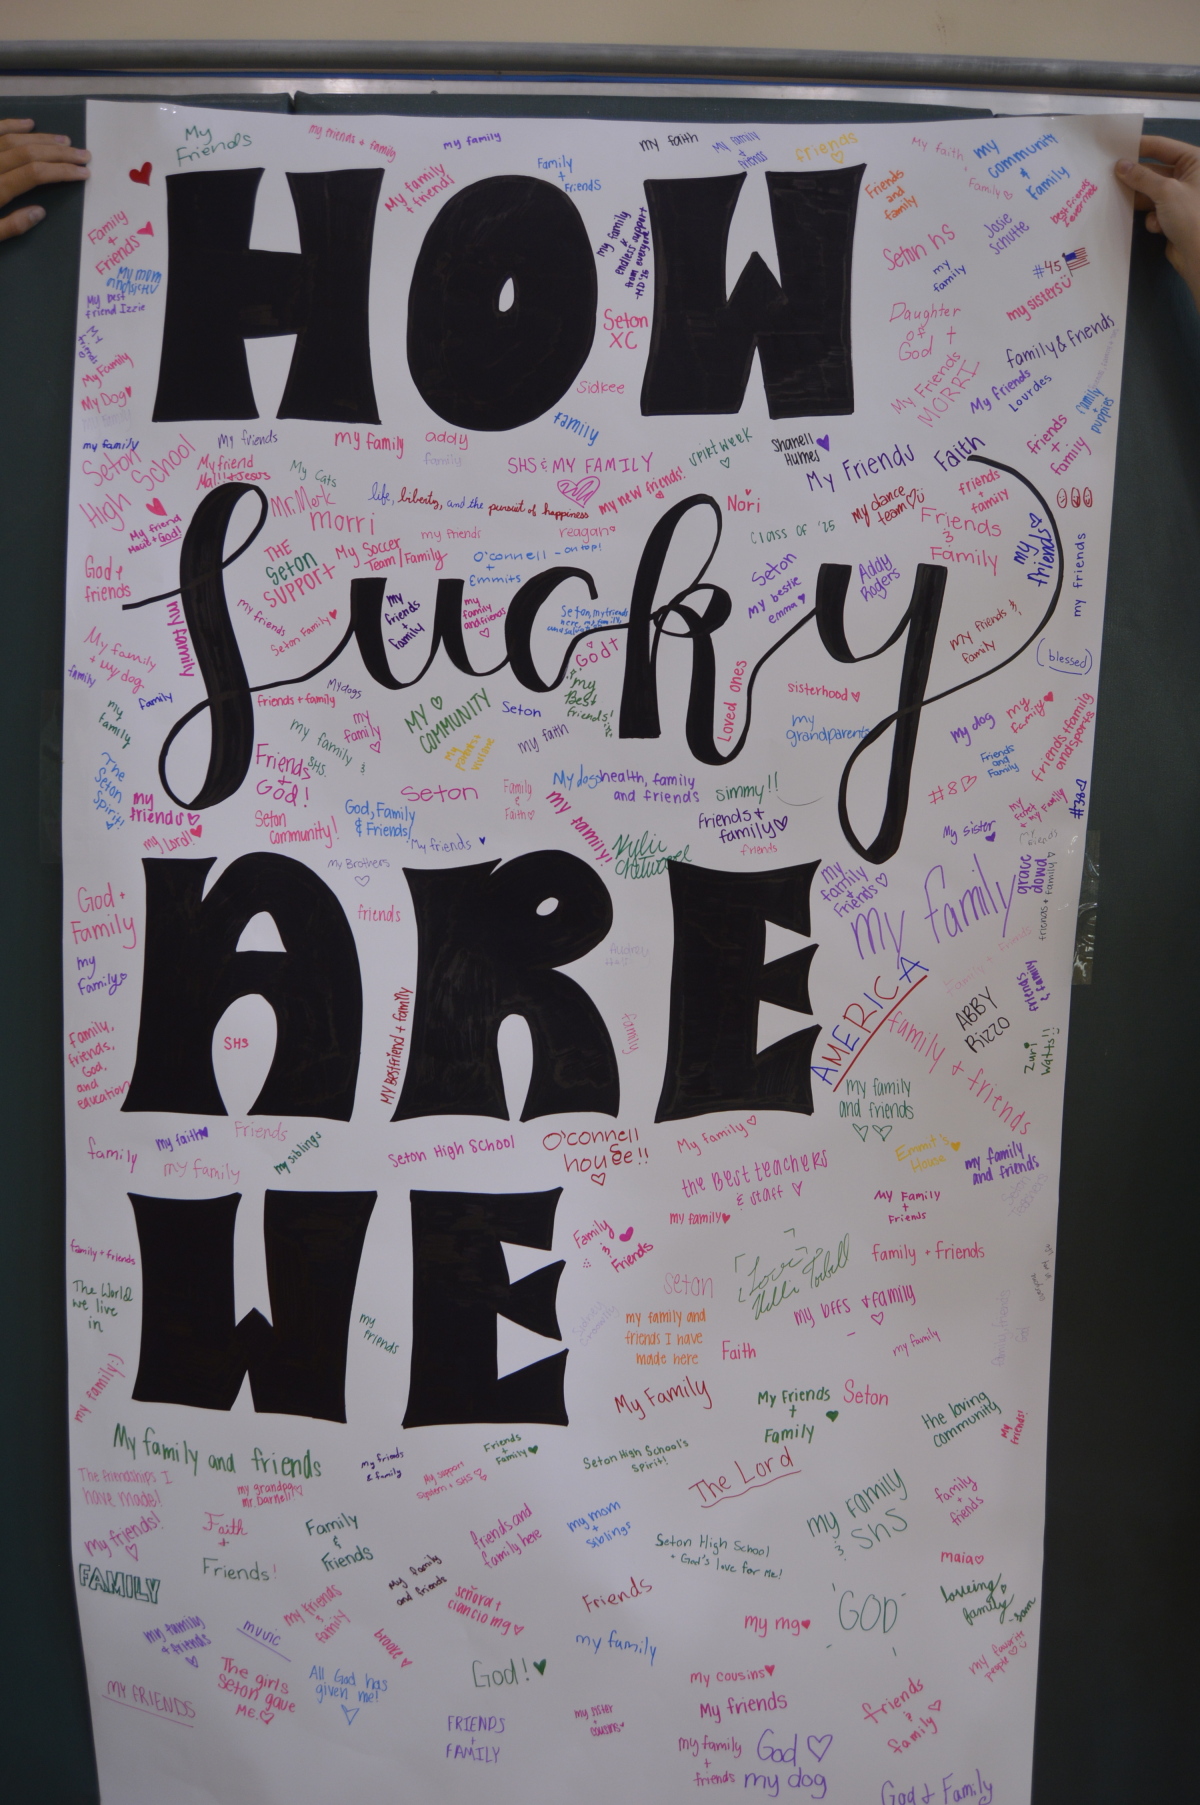 My
Friends
my friends + family
my family
my faith
My family
+
friends
friends
My faith
my
community
&
Family
Family
My family
+ friends
Family
+
Friends
Friends
and
family
best friends
Family
+
Friends
my family
&
endless support
from everyone
-MD '25
Seton HS
Josie
Schutte
my
family
#45
my sisters
My mom
My best
friend Izzie
Seton
XC
Daughter
of
God
family & friends
My
friends
My Family
My Dog
Sidkee
My Friends
MORRI
My friends
Lourdes
family
puppies
HOW
my family
My friends
my family
addy
family
family
Seton
High School
My friend
My Cats
SHS & MY FAMILY
spirit week
Shanell
Humes
My Friends
Faith
friends
+
family
Mr. Mork
life, liberty, and the pursuit of happiness
my new friends!
Nori
my dance
team
friends
+
family
morri
my friends
reagan
class of '25
Friends
&
Family
my
friends
my friends
My friend
God!
God +
friends
THE
Seton
SUPPORT
My Soccer
Team/Family
O'connell - on top!
+
Emmits
Seton
My bestie
emma
Addy
Rogers
my family
my friends
Seton Family
my
friends
+
family
my
family
and friends
God
My friends &
family
(blessed)
Lucky
My family
+ my dog
family
family
My dogs
friends + family
my
Best
friends!
Loved ones
sisterhood
my
family
my family
&
SHS
my
family
MY
COMMUNITY
Seton
my faith
my
grandparents
my dog
my
family
friends + family
and sports
Friends
and
Family
The
Seton
Spirit!
my
friends
my Lord!
Friends
+
God!
Seton
Community!
God, Family
& Friends
seton
Family
&
Faith
My dogs
health, family
and friends
simmy!!
#8B
my family!
friends +
family
friends
My sister
My friends
My Brothers
friends
my
family
+
Friends
my family
grace
dowd
friends + family
God +
Family
my
Family
ARE
family
AMERICA
ABBY
RIZZO
friends
& family
Family,
friends,
God,
and
education
SHS
MY Bestfriend + family
family + friends
Zuri
Watts!!
my family
and friends
family
my faith
Friends
my family
my siblings
Seton High School
O'connell
house!!
My family
the Best teachers
& staff
Emmit's
House
my family
and friends
my family
My Family
+
Friends
Family
&
Friends
family + friends
The World
we live
in
my
friends
WE
seton
"Love"
family + friends
my bffs + family
my family and
friends I have
made here
Faith
my family
my family :)
My Family
My Friends
+
Family
Seton
the loving
community
my
friends!
My family and friends
My friends
& family
Friends
+
Family
Seton High School's
Spirit!
The Lord
The friendships I
have made!
my grandpa
Mr. Darnell
my support
system + SHS
my family
&
SHS
family
+
friends
my friends!
Faith
+
Friends!
Family
&
Friends
friends and
family here
my mom
+
siblings
Seton High School
+ God's love for me!
maia
FAMILY
my family
and friends
señora +
ciancio mg
Friends
my mg
GOD
loveing
family
- sam
my family
+ friends
music
my friends
+
family
brooke
my family
my favorite
people
MY FRIENDS
The girls
Seton gave
me.
All God has
given me!
God!
my cousins
My friends
friends
&
family
FRIENDS
+
FAMILY
my sister
+
cousins
my family
+
friends
God
my dog
God & Family